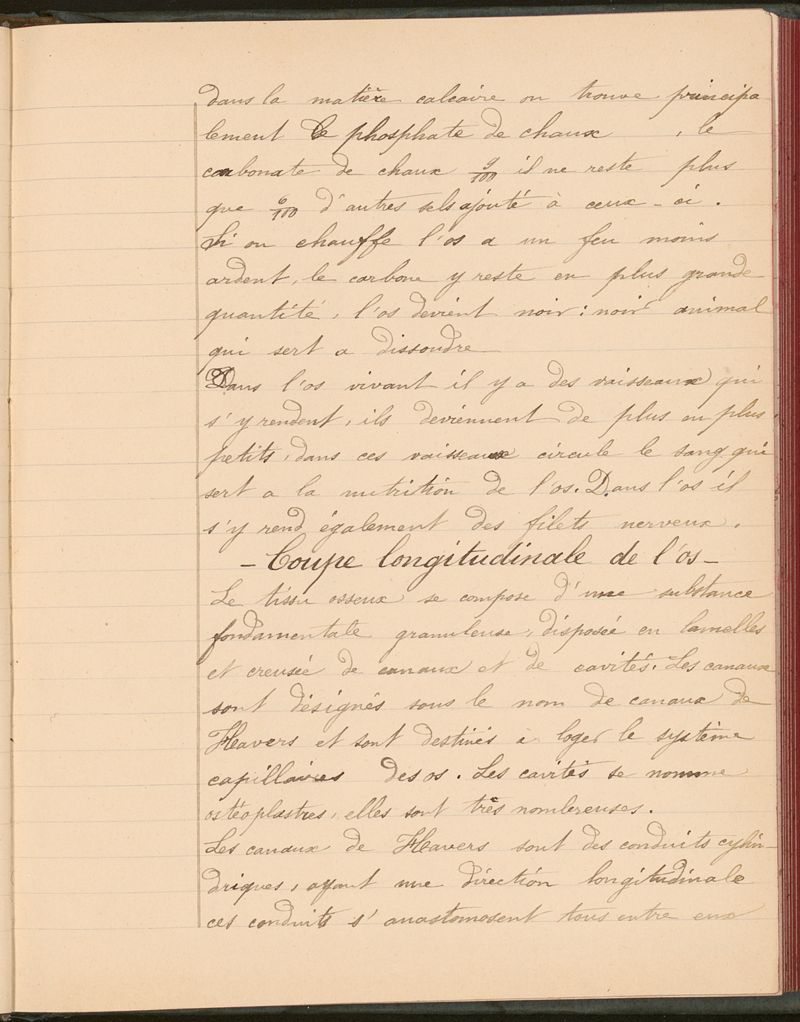 dans la matière calcaire on trouve principa
lement le phosphate de chaux , le
carbonate de chaux 9/100 il ne reste plus
que 6/100 d'autres sels ajouté à ceux-ci.
Si on chauffe l'os a un feu moins
ardent, le carbone y reste en plus grande
quantité, l'os devient noir: noir animal
qui sert a dissoudre
Dans l'os vivant il y a des vaisseaux qui
s'y rendent, ils deviennent de plus en plus
petits, dans ces vaisseaux circule le sang qui
sert a la nutrition de l'os. Dans l'os il
s'y rend également des filets nerveux.
- Coupe longitudinale de l'os -
Le tissu osseux se compose d'une substance
fondamentale granuleuse, disposée en lamelles
et creusée de canaux et de cavités. Les canaux
sont désignés sous le nom de canaux de
Havers et sont destinés à loger le système
capillaires des os. Les cavités se nomme
ostéoplastres, elles sont très nombreuses.
Les canaux de Havers sont des conduits cylin-
driques, ayant une direction longitudinale
ces conduits s'anastomosent tous entre eux